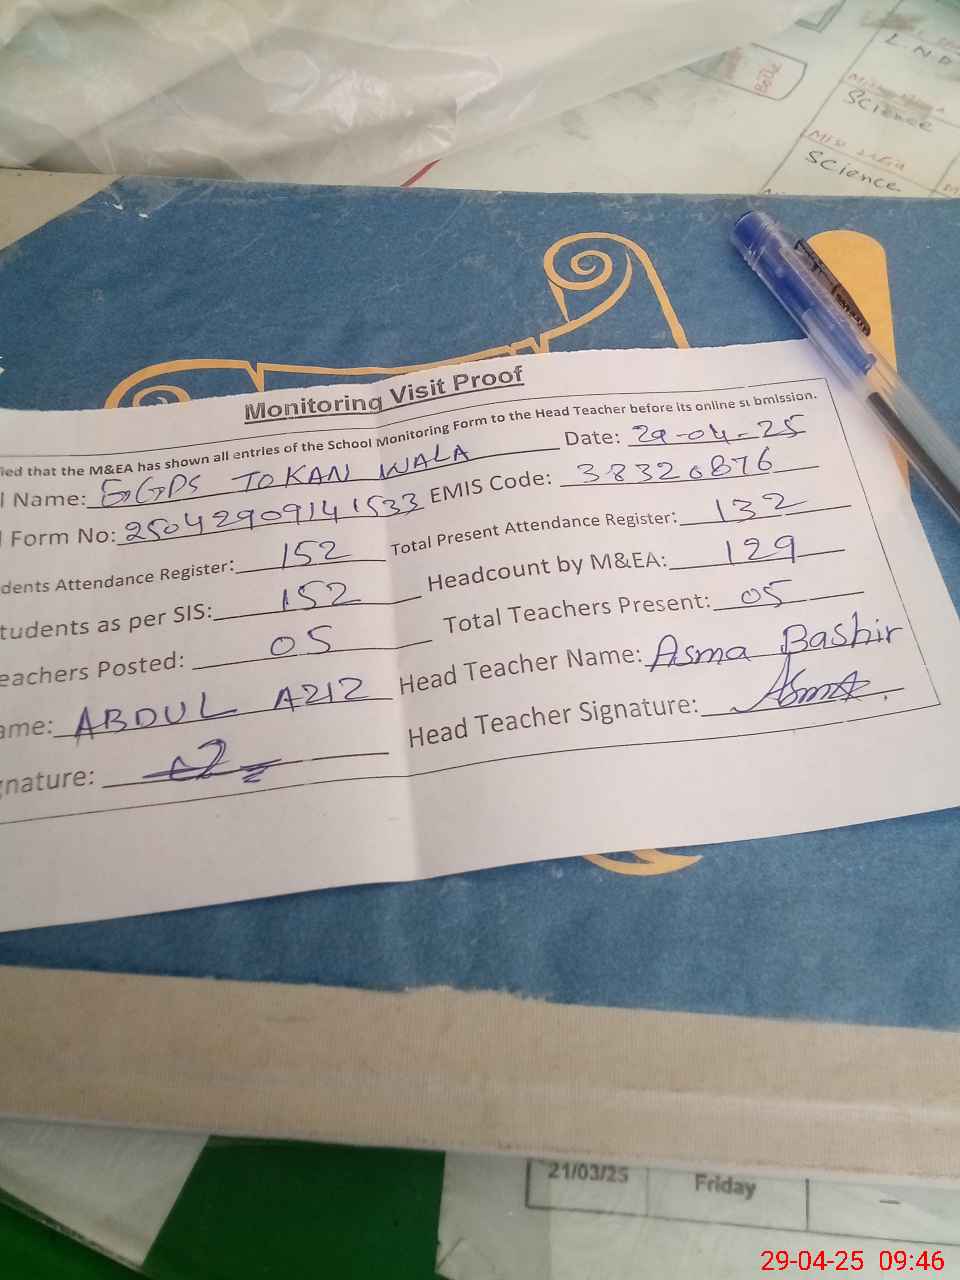 L.N.P
Science
Miss
Science
Monitoring Visit Proof
ied that the M&EA has shown all entries of the School Monitoring Form to the Head Teacher before its online submission.
l Name: GGPS TOKAN WALA Date: 29-04-25
l Form No: 25042909141533 EMIS Code: 38320876
dents Attendance Register: 152 Total Present Attendance Register: 132
tudents as per SIS: 152 Headcount by M&EA: 129
eachers Posted: 05 Total Teachers Present: 05
ame: ABDUL AZIZ Head Teacher Name: Asma Bashir
gnature: Head Teacher Signature: Asma
21/03/25 Friday –
29-04-25 09:46